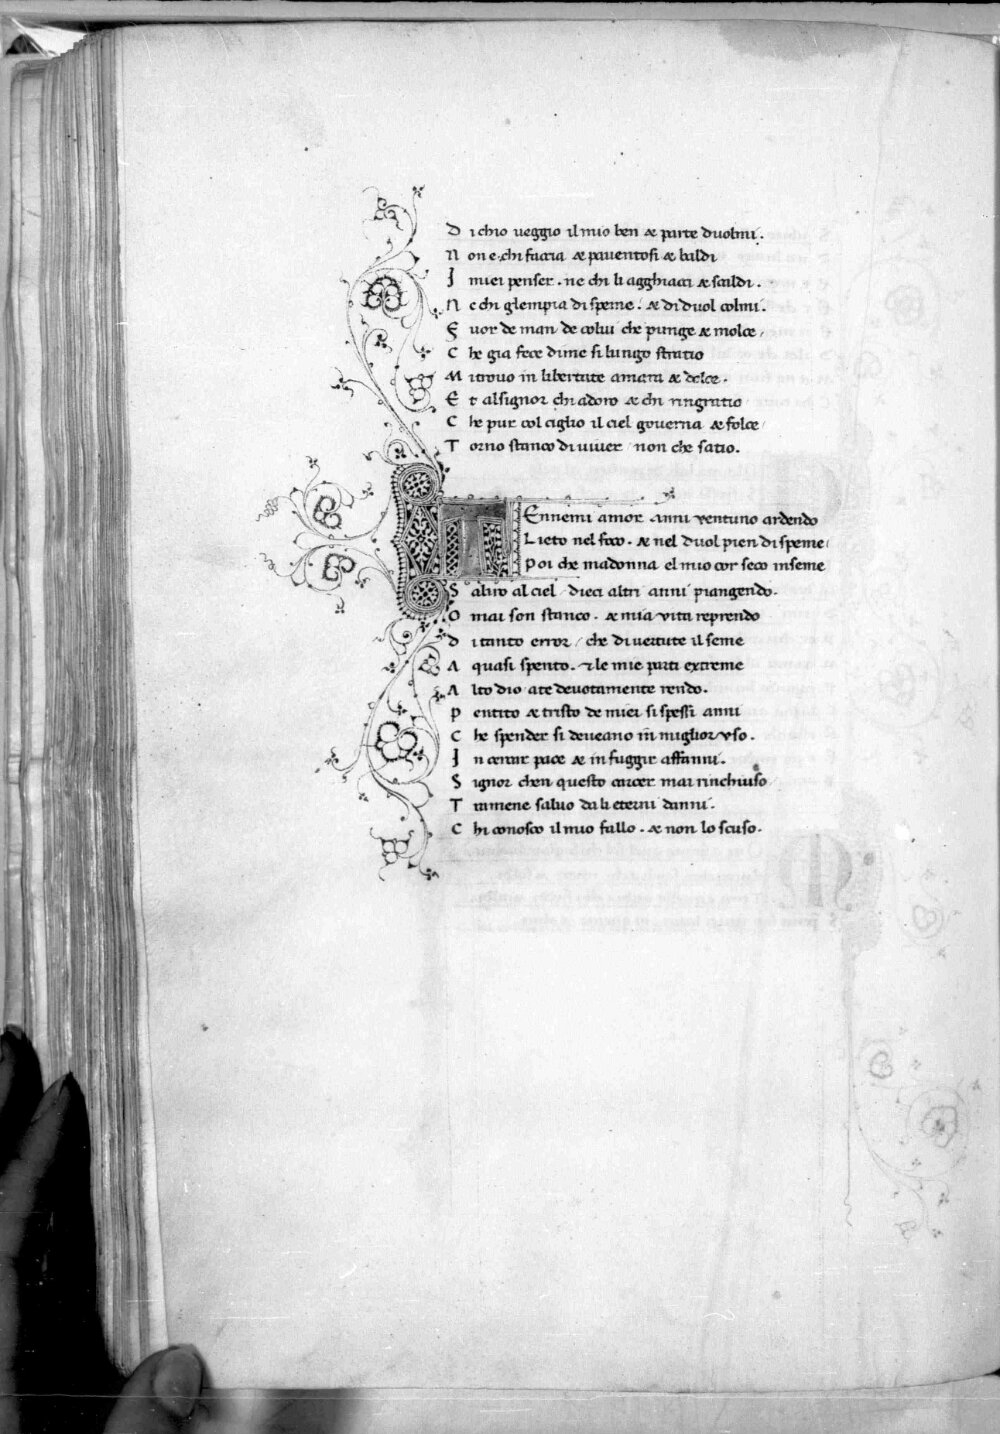 D i chio ueggio il mio ben & parte duolmi.
N on e chi faccia & pauentosi & baldi
I miei penser. ne chi li agghiacci & scaldi.
N e chi glempia di speme. & di duol colmi.
F uor de man de colui che punge & molce/
C he gia fece di me si lungo stratio
M i trouo in libertate amara & dolce.
E t al signor chi adoro & chi ringratio
C he pur col ciglio il ciel gouerna & folce/
T orno stanco di uiuer/ non che satio.
T Ennemi amor anni ventuno ardendo
L ieto nel foco. & nel duol pien di speme/
P oi che madonna el mio cor seco inseme
S aliro al ciel/ dieci altri anni piangendo.
O mai son stanco. & mia vita reprendo
D i tanto error/ che di uertute il seme
A quasi spento. & le mie parti extreme
A lto dio a te deuotamente rendo.
P entito & tristo de miei si spessi anni
C he spender si deueano in miglior vso.
I n cercar pace & in fuggir affanni.
S ignor chen questo carcer mai rinchiuso
T ramene saluo da li eterni danni.
C hi conosco il mio fallo. & non lo scuso.